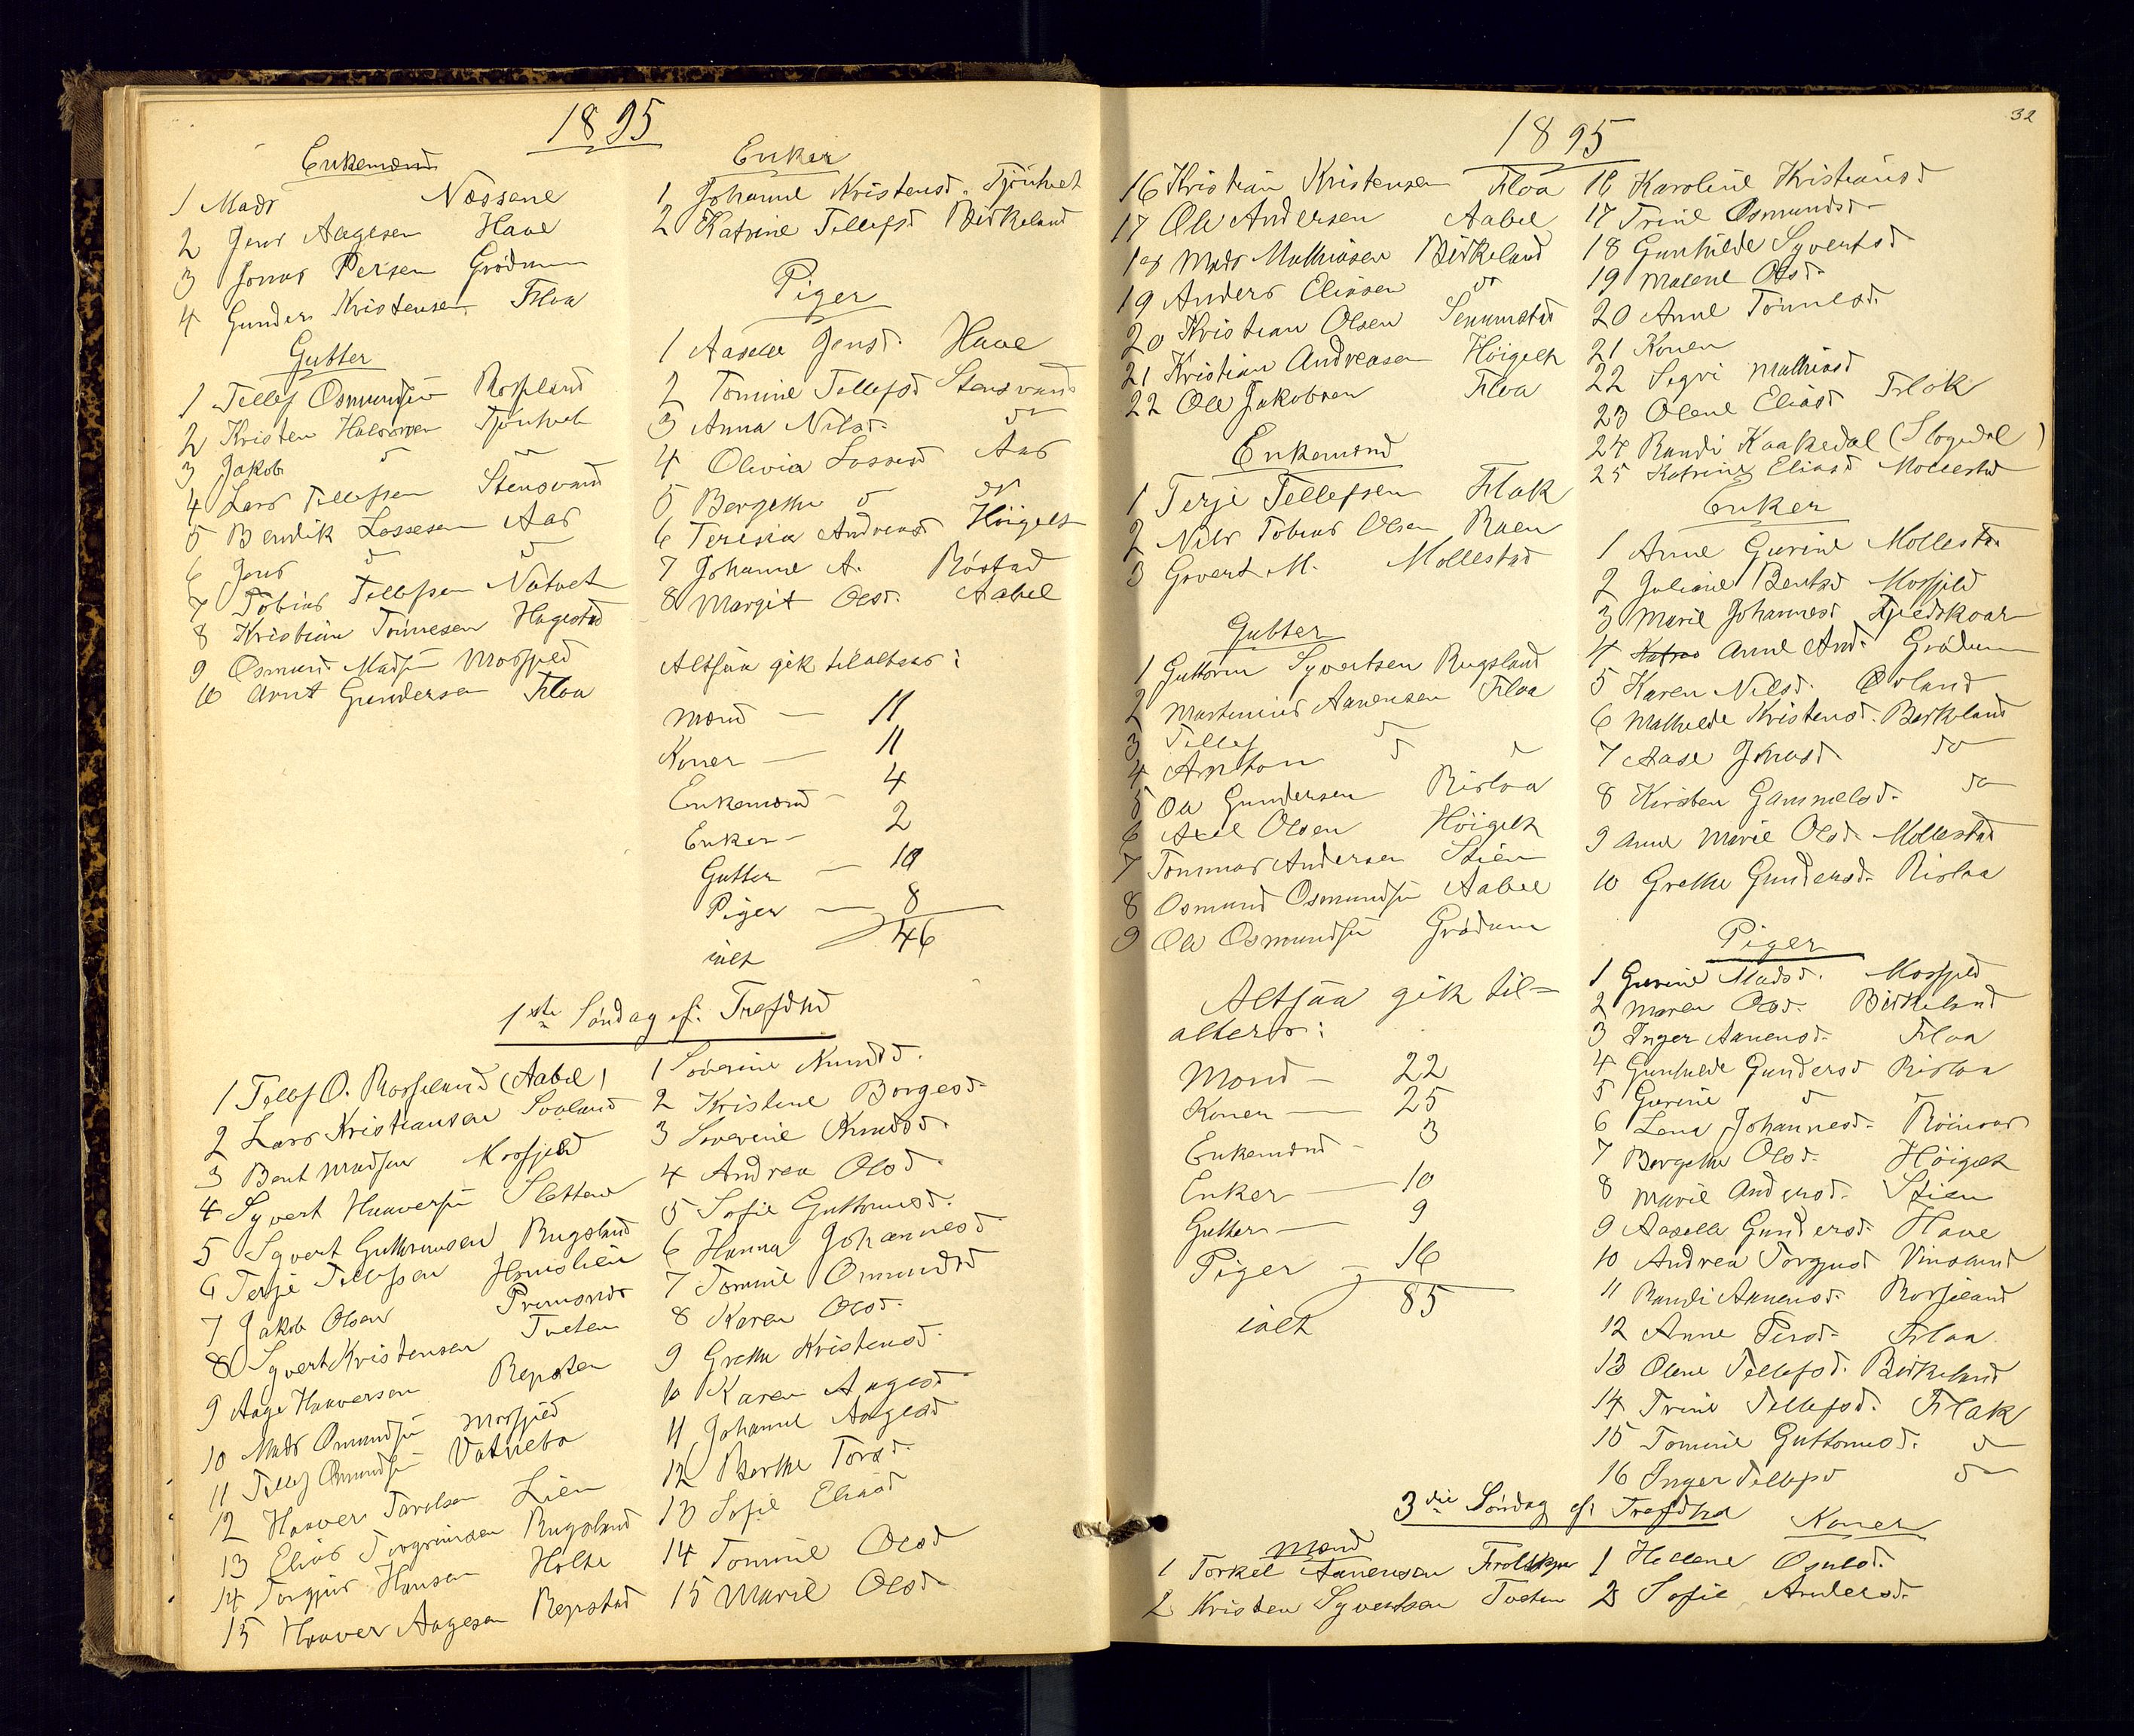 1895
Enkemænd
1 Mads Næssene
2 Jens Aagesen Haae
3 Jonas Persen Grødum
4 Gunder Kristensen Flaa
Gutter
1 Tellef Osmundsen Rosseland
2 Kristen Halvorsen Tjønhvet
3 Jakob do
4 Lars Tellefsen Stensvand
5 Bendik Lassesen Aas
6 Jens do do
7 Tobias Tellefsen Natvet
8 Kristian Tønnesen Hagestad
9 Osmund Madsen Mosfjeld
10 Arnt Gundersen Flaa
Enker
1 Johanne Kristensd. Tjønhvet
2 Katrine Tellefsd Birkeland
Piger
1 Aaselle Jensd. Haae
2 Tomine Tellefsd Stensvand
3 Anna Nilsd. do
4 Olivia Lassesd Aas
5 Bergithe do do
6 Teresia Andreasd Høigilt
7 Johanne A. Røstad
8 Margit Olsd. Aabel
Altsaa gik tilalters:
Mænd — 11
Koner — 11
Enkemænd — 4
Enker — 2
Gutter — 10
Piger — 8
ialt 46
1ste Søndag ef. Trefdhd
1 Tellef O. Rosseland (Aabel)
2 Lars Kristiansen Sooland
3 Bent Madsen Mosfjeld
4 Syvert Haaversen Sletten
5 Syvert Guttormsen Rugsland
6 Terje Tellefsen
7 Jakob Olsen
8 Syvert Kristensen Tveten
9 Aage Haaversen Repsten
10 Mads Omundsen Mosfjeld
11 Tellef Omundsen Vatnebo
12 Haaver Tarolsen Lien
13 Elias Torgrimsen Rugsland
14 Torgjus Hansen Holte
15 Haaver Aagesen Repstad
1 Severine Knudsd.
2 Kristine Borgesd.
3 Severine Knudsd.
4 Andrea Olsd.
5 Sofie Guttormsd.
6 Hanna Johannesd
7 Tomine Omundsd
8 Karen Olsd.
9 Grethe Kristensd.
10 Karen Aagesd.
11 Johanne Aagesd
12 Berthe Torsd.
13 Sofie Eliasd
14 Tomine Olsd
15 Marie Olsd.
32
1895
16 Kristian Kristensen Flaa
17 Ole Andersen Aabel
18 Mads Mathiasen Birkeland
19 Anders Eliasen do
20 Kristian Olsen Senumstad
21 Kristian Andreasen Høigilt
22 Ole Jakobsen Flaa
Enkemænd
1 Terje Tellefsen Flak
2 Nils Tobias Olsen Raen
3 Govert M. Mollestad
Gutter
1 Guttorm Syvertsen Rugsland
2 Martinius Aanensen Flaa
3 Tellef do
4 Anton do do
5 Ole Gundersen Risløa
6 Axel Olsen Høigilt
7 Tommas Andersen Stien
8 Osmund Osmundsen Aabel
9 Ole Osmundsen Grødum
Altsaa gik til=
alters:
Mænd — 22
Koner — 25
Enkemænd — 3
Enker — 10
Gutter — 9
Piger — 16
ialt 85
16 Karoline Kristiansd
17 Trine Osmundsd.
18 Gunhilde Syvertsd
19 Malene Olsd.
20 Anne Tønnesd.
21 Konen
22 Sigri Mathiasd
23 Olene Eliasd Flak
24 Randi Kaakedal (Slogedal)
25 Katrine Eliasd Mollestad
Enker
1 Anne Gurine Mollestad
2 Juliane Bentsd Mosfjeld
3 Marie Johannesd
4 Anne And. Grødum
5 Karen Nilsd.
6 Mathilde Kristensd. Berkeland
7 Aase Johnsd do
8 Kirsten Gammelsd. do
9 Anne Marie Olsd. Mollestad
10 Grethe Gundersd. Risløa
Piger
1 Gurine Madsd. Mosfjeld
2 Maren Olsd. Birkeland
3 Inger Aanensd. Flaa
4 Gunhilde Gundersd Risløa
5 Gurine do do
6 Lena Johannesd. Røinaas
7 Bergithe Olsd. Høigilt
8 Marie Andersd. Stien
9 Aaselle Gundersd. Haae
10 Andrea Torgjusd Vinsland
11 Randi Aanensd. Rosseland
12 Anne Persd. Flaa
13 Olene Tellefsd. Birkeland
14 Trine Tellefsd. Flak
15 Tomine Guttormsd. do
16 Inger Tellefsd do
3die Søndag ef. Trefdhd
Mænd
1 Torkel Aanensen
2 Kristen Syvertsen Tveten
Koner
1 Hellene Osulsd.
2 Sofie Andersd.